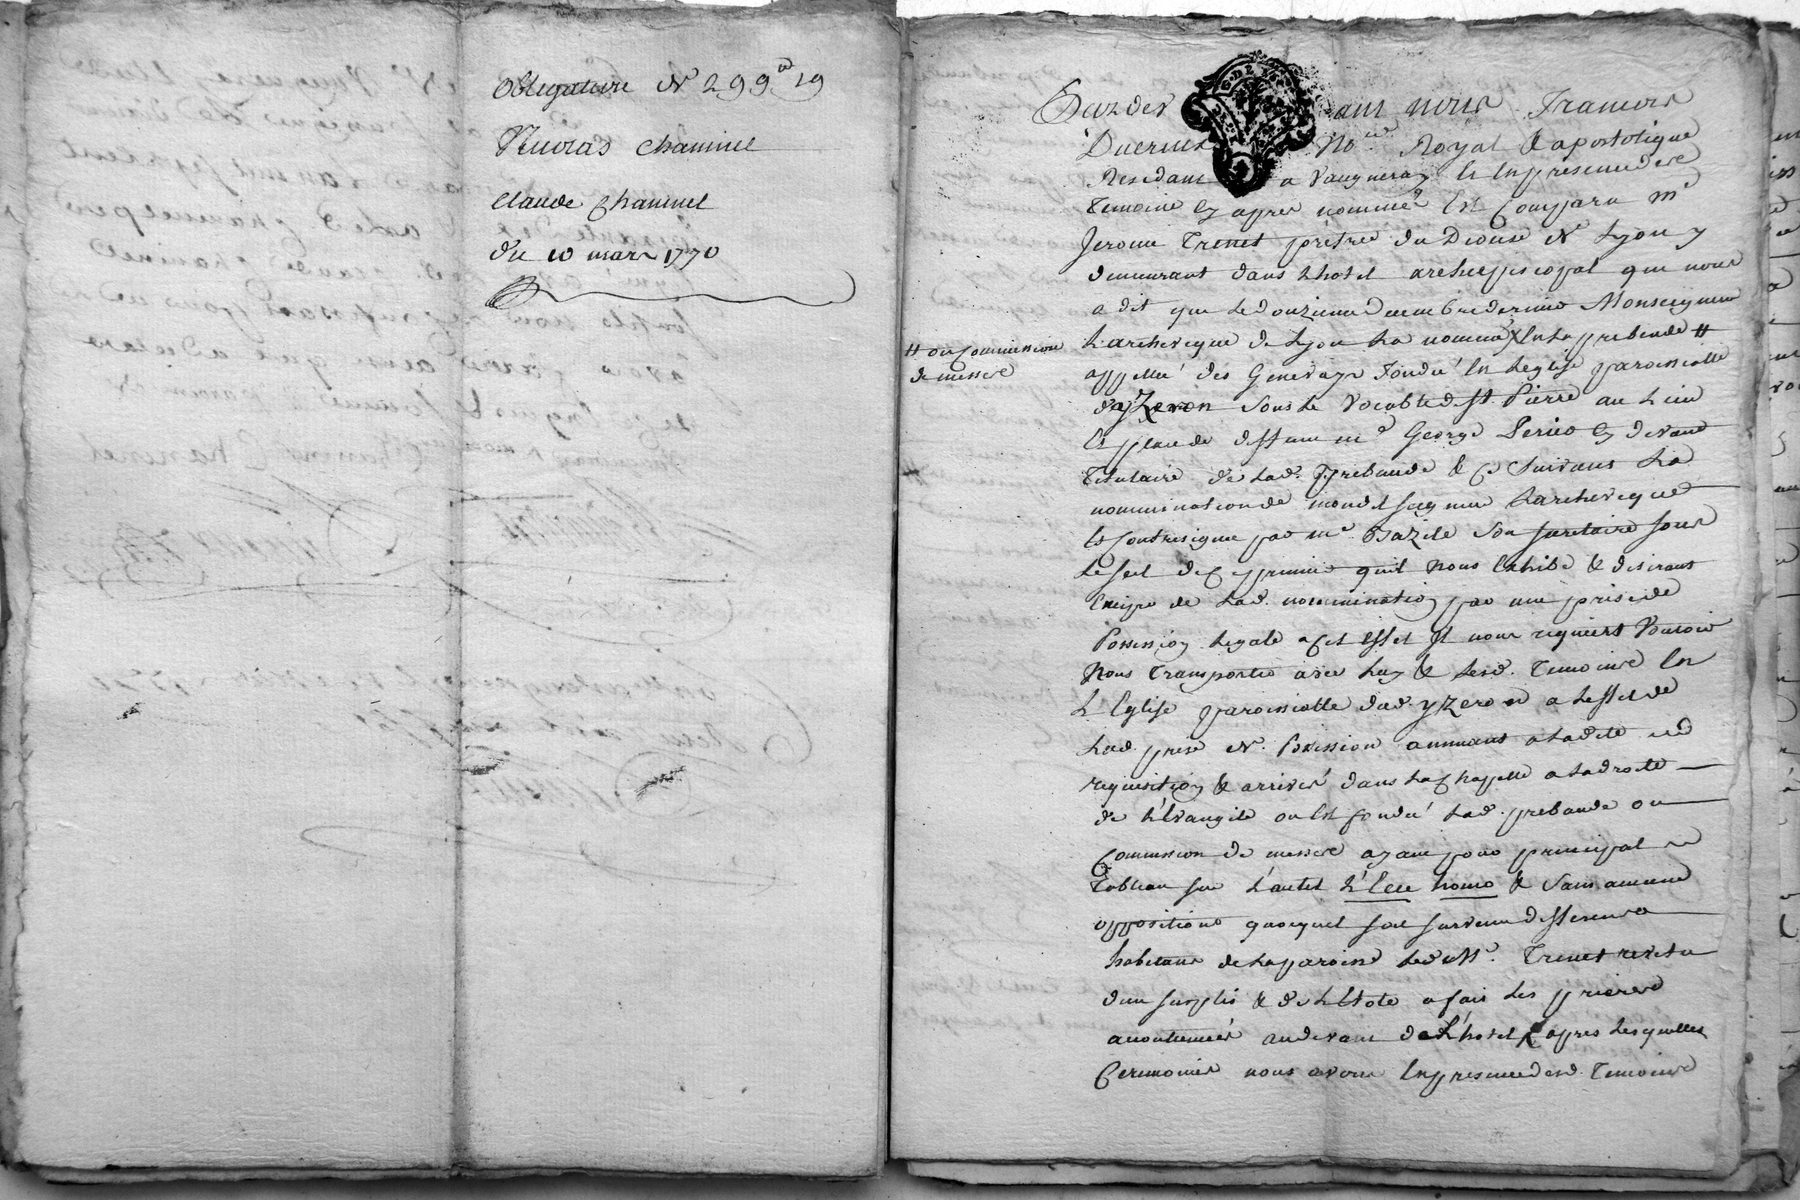 Obligature de 299# 19
Nicolas Chaninel
Claude Chaninel
du 10 mars 1770
Pardevant nous Francois
Duernet No.re Royal & apostolique
Residant a Vaugneray & En presence des
temoins cy apres nommés Est Comparu mre
Jerome Trenet prêtre du Diocese de Lyon y
demeurant dans Lhotel archiepiscopal qui nous
a dit que Le douzieme decembre dernier Monseigneur
Larcheveque de Lyon La nommé En La prebende #
# ou Commission
de messes
appellée des Genevays fondée En Leglise paroissialle
d'yzeron Sous Le Vocable de St. Pierre au Lieu
Et place de deffunt mre George Perico cy devant
titulaire de Lad. Prebande & Ce Suivant La
nomination de mondit seigneur Larcheveque
Et Contresigné par mre Bazile Son secretaire sous
Le seel de Ce premier quil nous Exhibe & desirant
Lad. nomination par une prise de
Possession Legale a Cet Effet Il nous requiert Vouloir
Nous transporter avec Luy & Lesd. temoins En
L'Eglise paroissialle dud. yzeron a Leffet de
Lad. prise de Possession a Ladite
requisition & arrivés dans La Chappelle a La droite
de L'Evangile ou Est fondée Lad. prebande ou
Commission de messes ayant pour principal
tableau sur L'autel L'Ecce homo & Sans aucune
opposition quoyquil soit survenu differents
habitans de La paroisse Led. Mre. Trenet revetu
dun surplis & de L'Etole a fait Les prieres
accoutumées audevant de L'hotel & apres Lesquelles
Ceremonies nous avons En presence desd. temoins